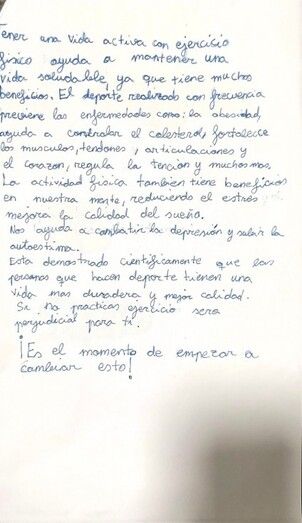 Tener una vida activa con ejercicio
físico ayuda a mantener una
vida saludable, ya que tiene muchos
beneficios. El deporte realizado con frecuencia
previene las enfermedades como: la obesidad,
ayuda a controlar el colesterol, fortalece
los musculos, tendones, articulaciones y
el corazon, regula la tencion y muchos mas.
La actividad física tambien tiene beneficios
en nuestra mente, reduciendo el estrés
mejora la calidad del sueño.
Nos ayuda a combatir la depresión y la
autoestima.
Esta demostrado cientificamente que las
personas que hacen deporte tienen una
vida mas duradera y mejor calidad.
Si no practicas ejercicio sera
perjudicial para ti.
¡Es el momento de empezar a
cambiar esto!